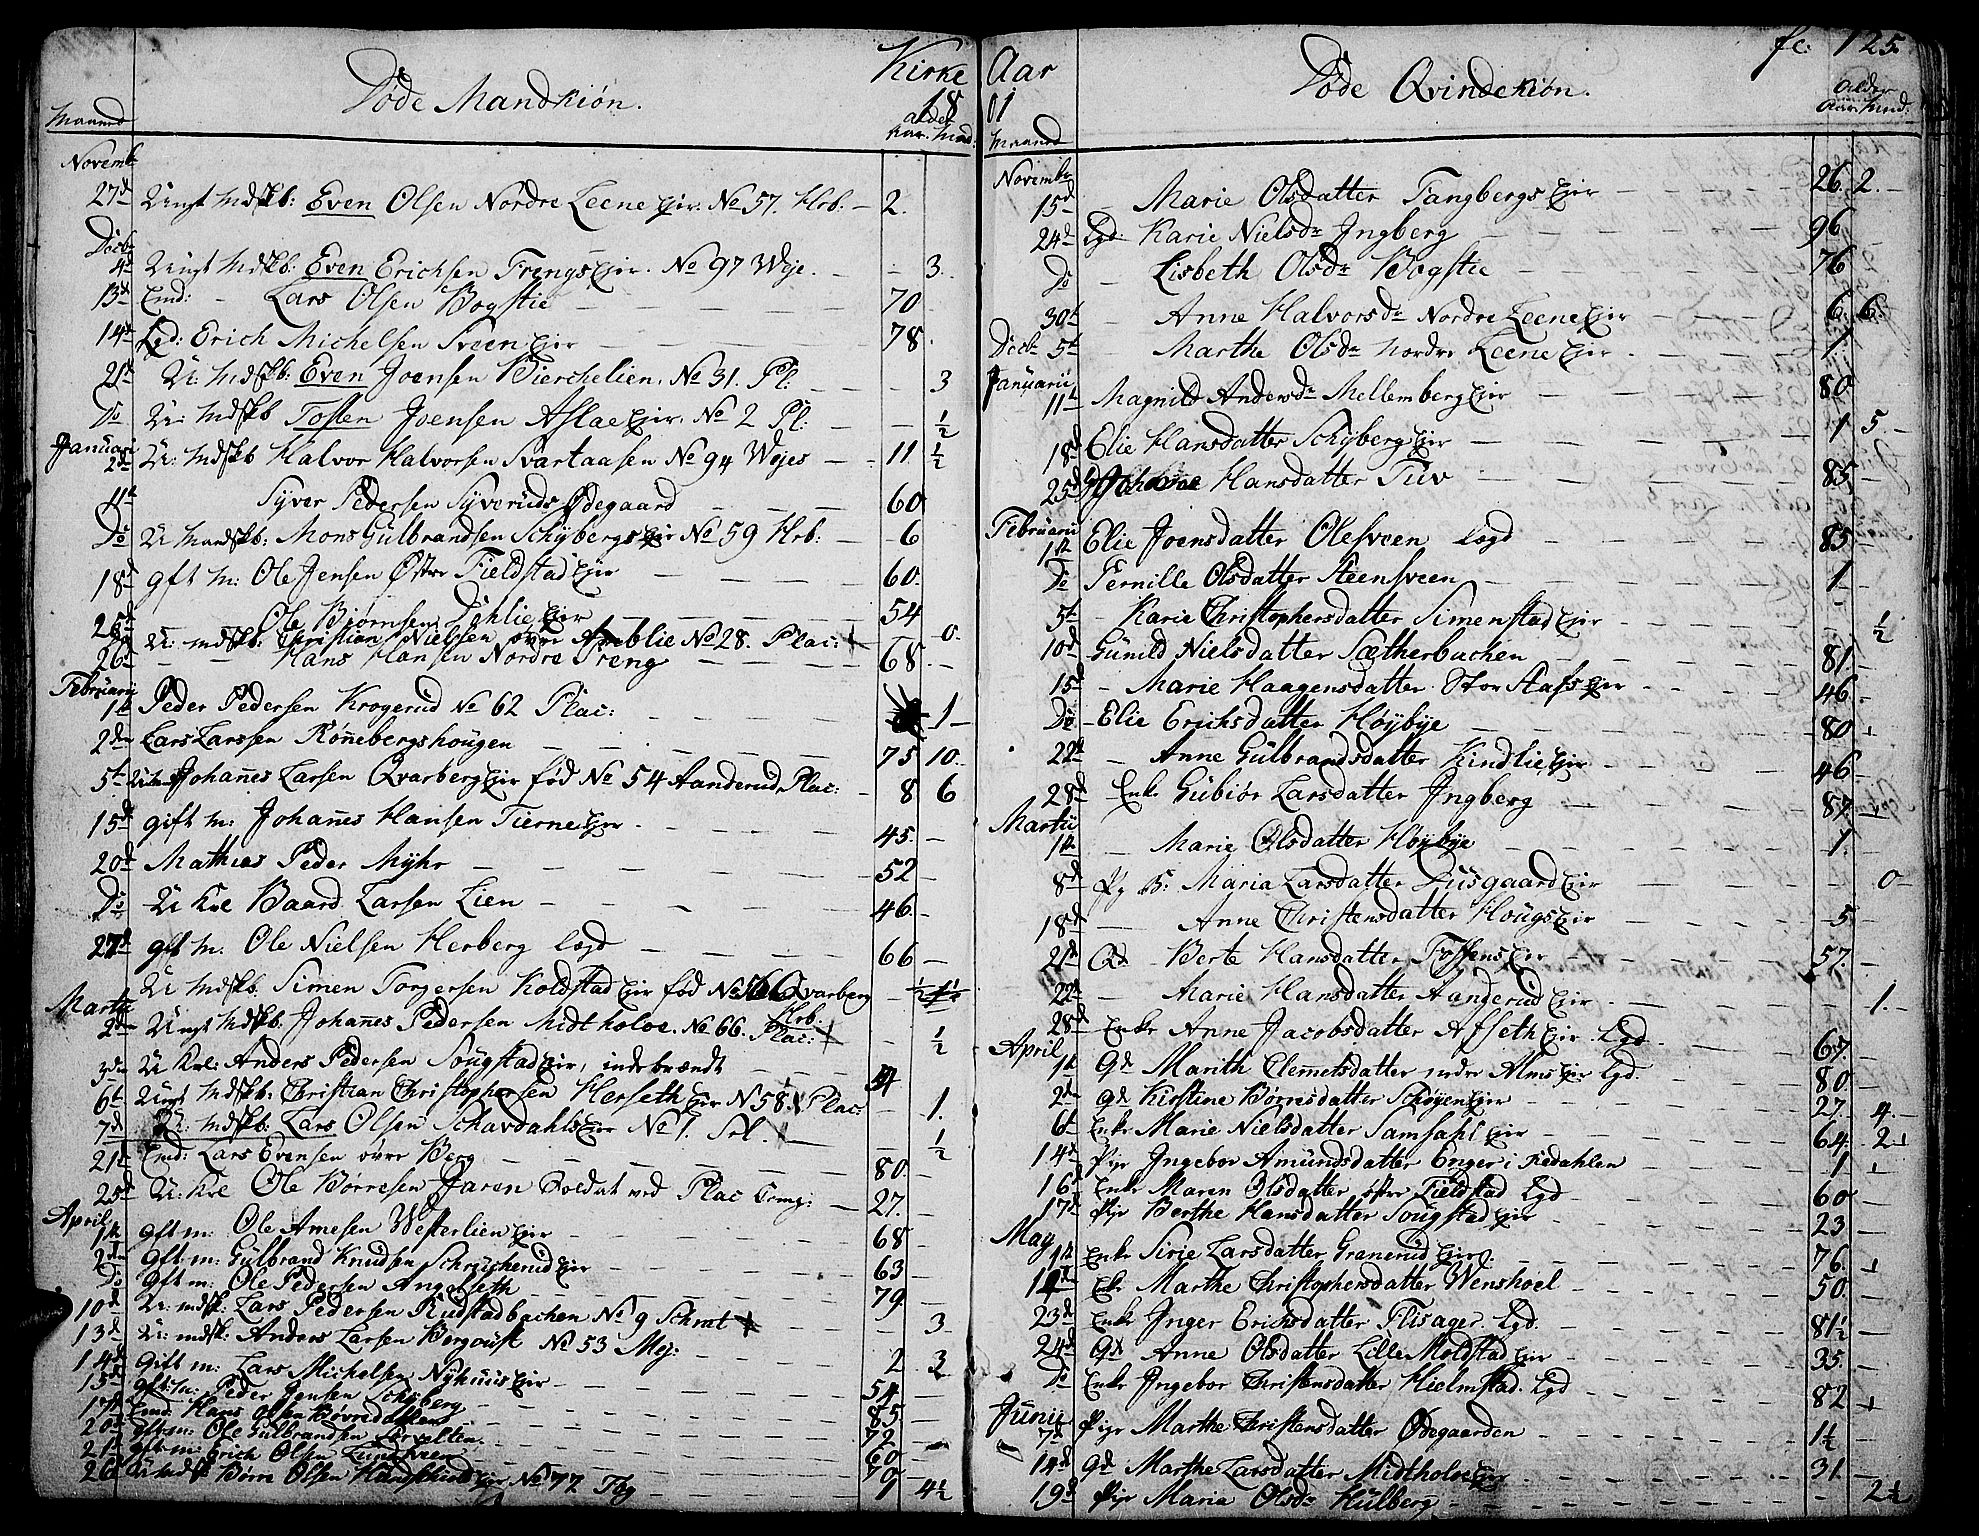 Kirke
Døde Mandkiøn.
18
Maaned
alder
Aar. Mnd.
Novembr
27d Ungt Mdskb: Even Olsen Nordre Leene Ejer. No 57. Hrb: - 2.
Decbr
4d Ungt Mdskb: Even Erichsen Trengs Ejer. No 97 Weje. - - 3.
13d Emd: - Lars Olsen Bogstie 70
14d Lgd: Erich Michelsen Sveen Ejer 78.
21d U: Mdskb: Even Joensen Bierchelien. No 31. Pl: 3
Do U: Mdskb Tosten Joensen Aslae Ejer. No 2 Pl: ½
Januari
2d U: Mdskb Halvor Halvorsen Svartaasen No 94 Wejes 11 ½
11t Syver Pedersen Syveruds Ødegaard 60
Do U Mandskb: Mons Gulbrandsen Schybergs Ejer No 59 Hrb: 6
18d gft M: Ole Jensen Østre Fieldstad Ejer 60.
25d Ole Biørnsen Ejer 54
Do U: Mdskb: Christian Nielssen øvre No 28. Plac: 0.
26d - Hans Hansen Nordre Treng 68.
Februarii
1t Peder Pedersen Krogerud No 62 Plac: 1
2den Lars Larssen Rønnebergshougen 75 10.
5t Johannes Larsen Qvarberg Ejer fød No 54 Aanderud Plac: 8 6
15d gift M: Johannes Hansen Tierne Ejer. 45.
20d Mathies Peder Myhr 52
Do U Krl Baard Larsen Lien 46.
27d gft M: Ole Nielsen Herberg Lægd 66
U Mdskb. Simen Torgersen Koldstad Ejer fød No 56 Qvarberg ½
Hrb.
Martii
2den Ungt Mdskb. Johannes Pedersen Midtholoe. No 66. Plac: ½
3den U Krl: Anders Pedersen Sougstad Ejer, indebrændt
6t Ungt Mdskb: Christian Christophersen Herseth Ejer N 58. Plac: 1.
7d U: Mdskb: Lars Olsen Schavdahls Ejer No 1. Srl. ½
21d Emd: Lars Evensen øvre Berg 80.
25d U: Krl Ole Børresen Jaren Soldat ved Plac Comp: 27.
April
1t gft m: Ole Arnesen Westerlien Ejer 68
2den gft m: Gulbrand Knudsen Ejer 63
Do gft m: Ole Pedersen Angelseth 79.
10d U: mdsk: Lars Pedersen Rudstadbachen No 9 3
13d U: mdsk: Anders Larsen Bergoust No 53 Mej: 2 3
14d Gift m: Lars Michelsen Nyhuus Ejer 54
15d gft m: Peder Jensen Lohsberg 85
17d Emd: Hans Olsen Bøvredahlens 72
20d gft m: Ole Gulbrandsen 60
21d gft m: Erich Olsen Lundsveen 70
26d U: Mdsk Børre Olsen Ejer No 77 Fbg 1 4½
Aar
fc: 125
Døde Qvindekiøn.
01
Maaned
alder
Aar. Mnd.
Novembr
15d - Marie Olsdatter Tangbergs Ejer 26. 2.
24d Lgd: Karie Nielsdr Ingberg 96
Do Lisbeth Olsdr Bogstie 76
30t - Anne Halvorsdr Nordre Leene Ejer 6. 6.
Decbr 5t - Marthe Olsdr Nordre Leene Ejer 1
Januarii
11t Magnild Andersdr Mellemberg Ejer 80
18d Elie Hansdatter Schyberg Ejer 1 5
25d Johanne Hansdatter Tuv 85
Februarii
1t Elie Joensdatter Olesveen Lægd 85
Do Pernille Olsdatter Steensveen 1
5t - Karie Christophersdatter Simenstad Ejer ½
10d Gunild Nielsdatter Sætherbachen 81.
15d - Marie Haagensdatter Stor Aafs Ejer 46.
Do - Elie Erichsdatter Høybye 80
22d - Anne Gulbrandsdatter Kindlie Ejer 46
28d Enke Gubiør Larsdatter Ingberg 87
Martii
1t - Marie Olsdatter Høybye 1.
8d Pg B: Maria Larsdatter Dusgaard Ejer 0
18d - Anne Christensdatter Hougs Ejer 5
21d Qd - Berte Hansdatter Ejer 57.
22d - Marie Hansdatter Aangerud Ejer 1.
28d Enke Anne Jacobsdatter Afseth Ejer. Lgd. 67.
April
1t Gd Marith Clemmetsdatter nedre Alms Ejer Lgd. 80.
2d gd Kirstine Børresdatter Schøyen Ejer 27. 4.
6t Enke Marie Nielsdatter Samsahl Ejer 64. 2
14d Pige Ingebor Amundsdatter Enger i Redahlen 1
16d Enke Maren Olsdatter østre Fieldstad Lgd 60
17d Pige Berthe Hansdatter Sougstad Ejer 23
May
1t Enke Sirie Larsdatter Granerud Ejer 76
14d Enke Marthe Christophersdatter Wenshoel 50.
23d Enke Inger Erichsdatter Flisager. Lgd. 81½
24d Gd Anne Olsdatter Lille Moldstad Ejer 35.
Do Enke Ingebor Christensdatter Hielmstad. Lgd 82
Junii
7d Pige Marthe Christensdatter Ødegaarden 1½
14d Gd Marthe Larsdatter Midtholoe Ejer 31
19d Pige Maria Olsdr Hulberg 2½